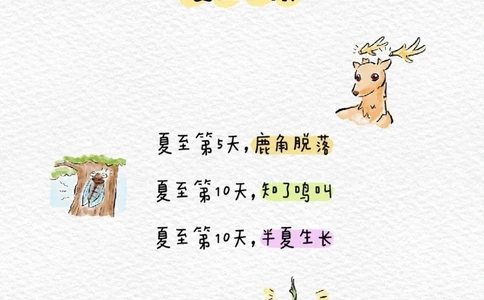 夏至第5天,鹿角脱落
夏至第10天,知了鸣叫
夏至第10天,半夏生长